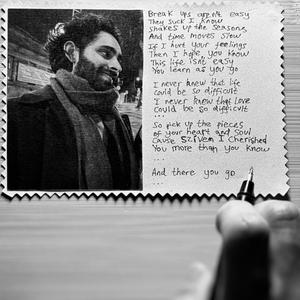 Break ups aren't easy
They suck I know
shakes up the seasons
And time moves slow
If I hurt your feelings
Then I hope you know
This life isn't easy
You learn as you go
I never knew that life
could be so difficult
I never knew that love
Could be so difficult
...
So pick up the pieces
of your heart and soul
Cause I cherished
You more than you know
...
And there you go
...